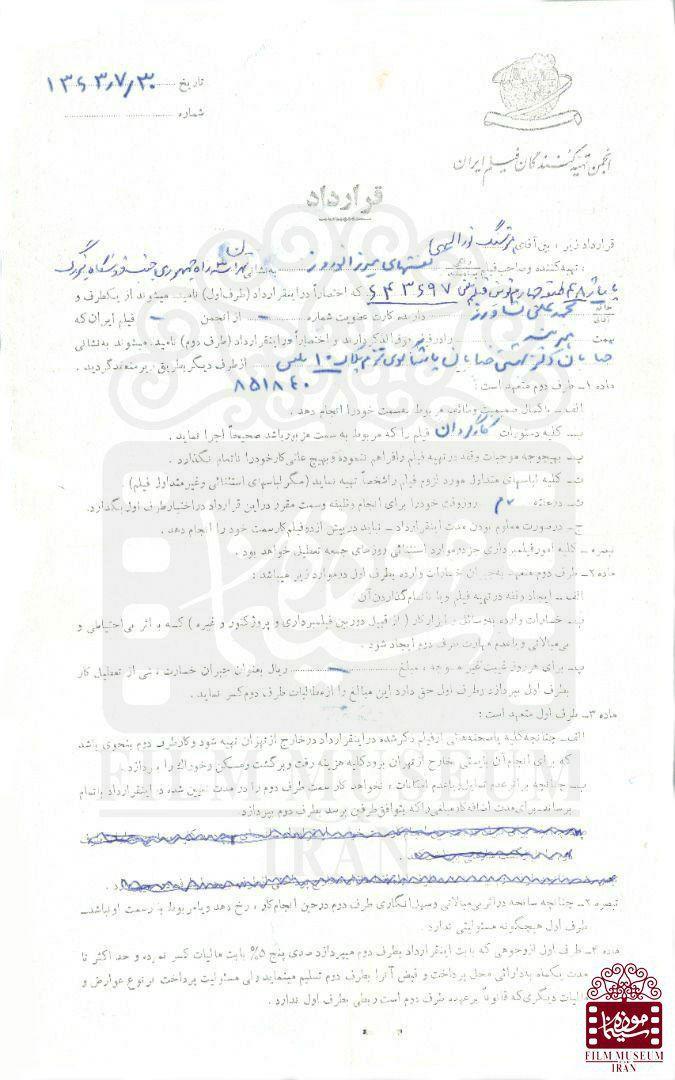 تاریخ ۱۳۶۳/۷/۳۰
شماره
انجمن تهیه کنندگان فیلم ایران
قرارداد
قرارداد زیر ، بین آقای
تهیه کننده و صاحب فیلم به نشانی تهران
که اختصاراً در اینقرارداد (طرف اول) نامیده میشوند از یکطرف و
دارنده کارت عضویت شماره — از انجمن — فیلم ایران که
را در فیلم فوق الذکر دارند و اختصاراً در اینقرارداد (طرف دوم) نامیده میشوند به نشانی
از طرف دیگر بطریق زیر منعقد گردید .
۸۵۱۸۴۰
ماده ۱- طرف دوم متعهد است :
الف - با کمال صمیمیت وظائف مربوط به سمت خود را انجام دهد .
ب- کلیه دستورات کارگردان فیلم را که مربوط به سمت مزبور باشد صحیحاً اجرا نماید .
پ- بهیچوجه موجبات وقفه در تهیه فیلم را فراهم ننموده و بهیچ عنانی کار خود را ناتمام نگذارد .
ت- کلیه لباسهای متداول مورد لزوم فیلم را شخصاً تهیه نماید (مگر لباسهای استثنائی و غیر متداول فیلم)
ث- در هفته روز وقت خود را برای انجام وظیفه و سمت مقرر در این قرارداد در اختیار طرف اول بگذارد.
ج- در صورت معلوم بودن مدت اینقرارداد - نباید در بیش از دو فیلم کار سمت خود را انجام دهد .
تبصره - کلیه امور فیلمبرداری جز در موارد استثنائی روزهای جمعه تعطیل خواهد بود .
ماده ۲- طرف دوم متعهد به جبران خسارات وارده بطرف اول در موارد زیر میباشد :
الف - ایجاد وقفه در تهیه فیلم و یا ناتمام گذاردن آن
ب - خسارات وارده به وسائل و ابزار کار ( از قبیل دوربین فیلمبرداری و پروژکتور و غیره ) که بر اثر بی احتیاطی و
بی مبالاتی و یا عدم مهارت طرف دوم ایجاد شود .
پ- برای هر روز غیبت غیر موجه ، مبلغ — ریال بعنوان جبران خسارت ناشی از تعطیل کار
بطرف اول بپردازد و طرف اول حق دارد این مبالغ را از مطالبات طرف دوم کسر نماید .
ماده ۳- طرف اول متعهد است :
الف- چنانچه کلیه یا صحنه هائی از فیلم ذکر شده در اینقرارداد در خارج از تهران تهیه شود و کار طرف دوم بنحوی باشد
که برای انجام آن بایستی بخارج از تهران برود کلیه هزینه رفت و برگشت و مسکن و خوراک را بپردازد .
ب- چنانچه بر اثر عدم تمایل و یا عدم امکانات ، نخواهد کار سمت طرف دوم را در مدت تعیین شده در اینقرارداد باتمام
برساند، برای مدت اضافه کار مبلغی را که بتوافق طرفین برسد بطرف دوم بپردازد
تبصره ۲- چنانچه سانحه در اثر بی مبالاتی و سهل انگاری طرف دوم در حین انجام کار ، رخ دهد و یا مربوط به سمت او نباشد-
طرف اول هیچگونه مسئولیتی ندارد .
ماده ۴- طرف اول از وجوهی که بابت اینقرارداد بطرف دوم میپردازد صدی پنج ۵% بابت مالیات کسر نموده و حد اکثر تا
مدت یکماه به دارائی محل پرداخت و قبض آنرا بطرف دوم تسلیم مینماید ولی مسئولیت پرداخت هر نوع عوارض و
مالیات دیگری که قانوناً بر عهده طرف دوم است ربطی بطرف اول ندارد .
FILM MUSEUM
IRAN
موزه سینما
FILM MUSEUM
IRAN